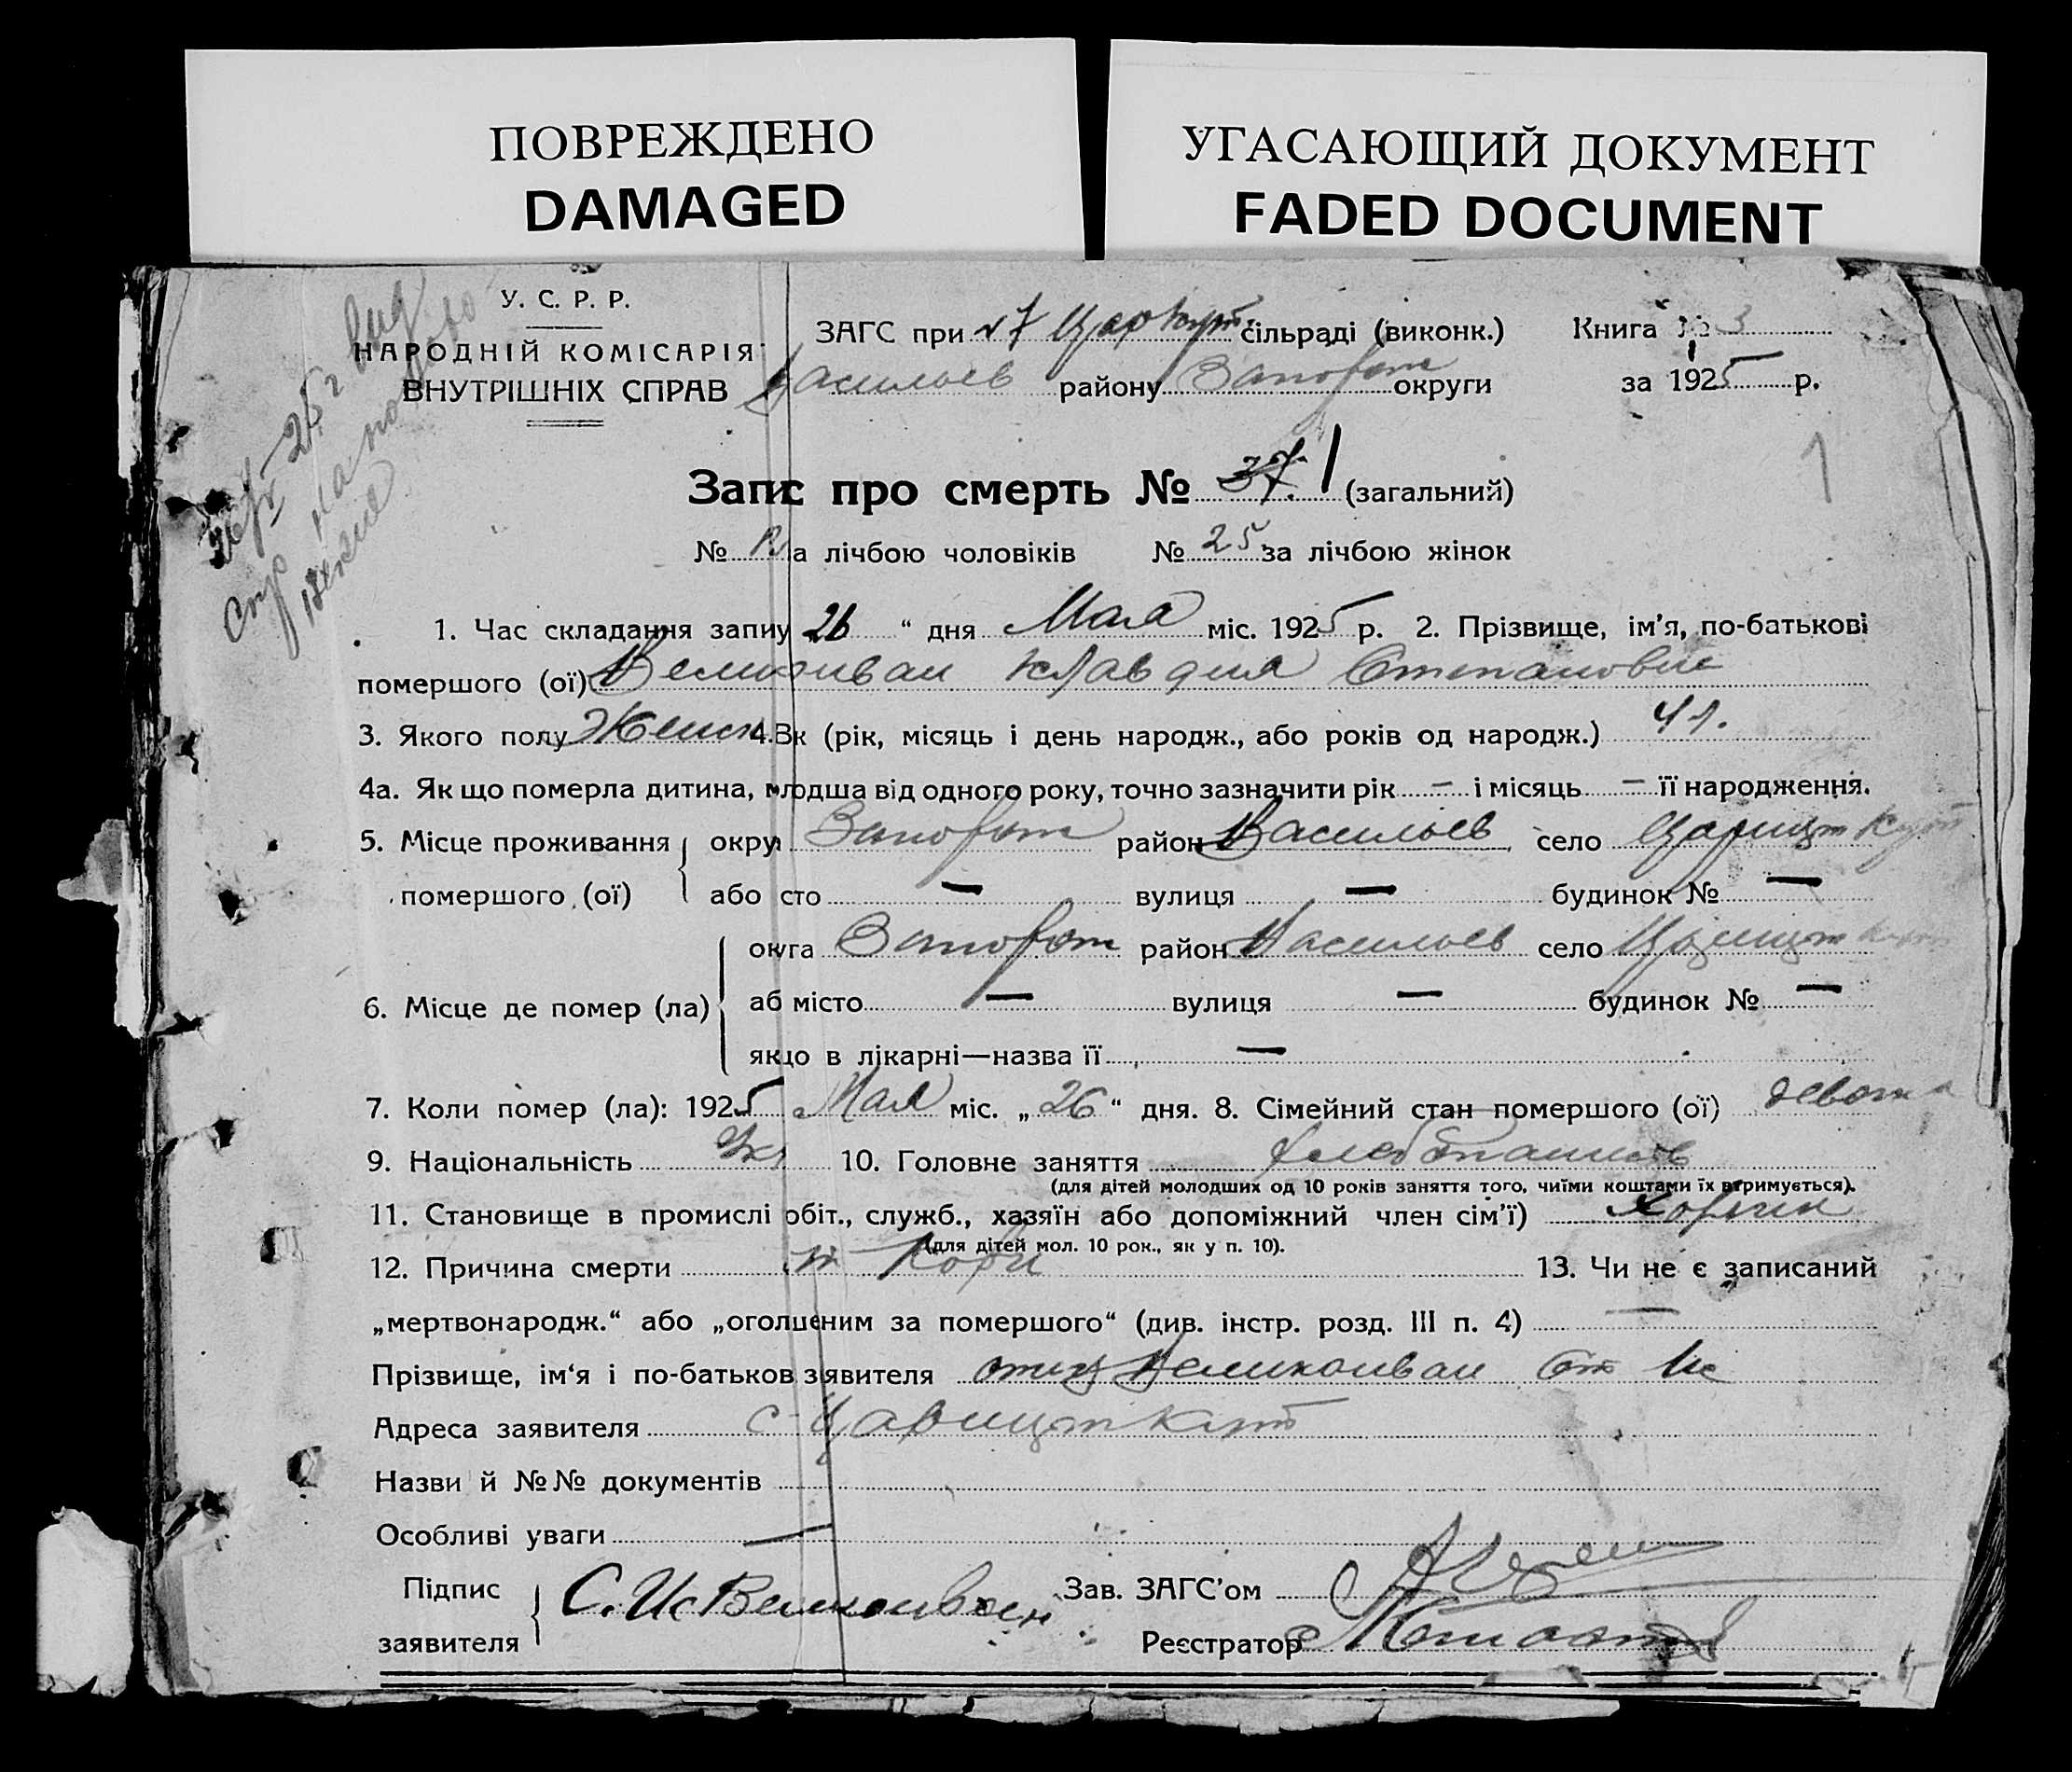 ПОВРЕЖДЕНО
DAMAGED
УГАСАЮЩИЙ ДОКУМЕНТ
FADED DOCUMENT
У. С. Р. Р.
НАРОДНІЙ КОМІСАРІЯ
ВНУТРІШНІХ СПРАВ
ЗАГС при №7 Царкут сільраді (виконк.) Книга № 3
Васильев району Запорож округи за 1925 р.
25 г
Запис про смерть № 37. 1 (загальний)
1
№ а лічбою чоловіків № 25 за лічбою жінок
1. Час складання запиу 26 “ дня Мая міс. 1925 р. 2. Прізвище, ім’я, по-батькові
помершого (ої) Великоиван Клавдия Степановне
3. Якого полу Женск 4. Вк (рік, місяць і день народж., або років од народж.) 4 г.
4а. Як що померла дитина, млодша від одного року, точно зазначити рік — і місяць — її народження.
5. Місце проживання помершого (ої) окру Запорож район Васильев село Царицын Кут
або сто — вулиця — будинок № —
6. Місце де помер (ла) окуга Запорож район Васильев село Царицын Кут
аб місто — вулиця — будинок № —
якцо в лікарні—назва її —
7. Коли помер (ла): 1925 Мая міс. „ 26 “ дня. 8. Сімейний стан помершого (ої) девочка
9. Національність Укр 10. Головне заняття хлебопашев
(для дітей молодших од 10 років заняття того, чиїми коштами їх втримується).
11. Становище в промислі обіт., служб., хазяїн або допоміжний член сім’ї) хозяин
(для дітей мол. 10 рок., як у п. 10).
12. Причина смерти от Кори 13. Чи не є записаний
„мертвонародж.“ або „оголшеним за помершого“ (див. інстр. розд. III п. 4) —
Прізвище, ім‘я і по-батьков зявителя отец Великоиван Ст Ис
Адреса заявителя с Царицын Кут
Назви й №№ документів
Особливі уваги —
Підпис заявителя С. Ис Великоиван Зав. ЗАГС’ом
Реєстратор